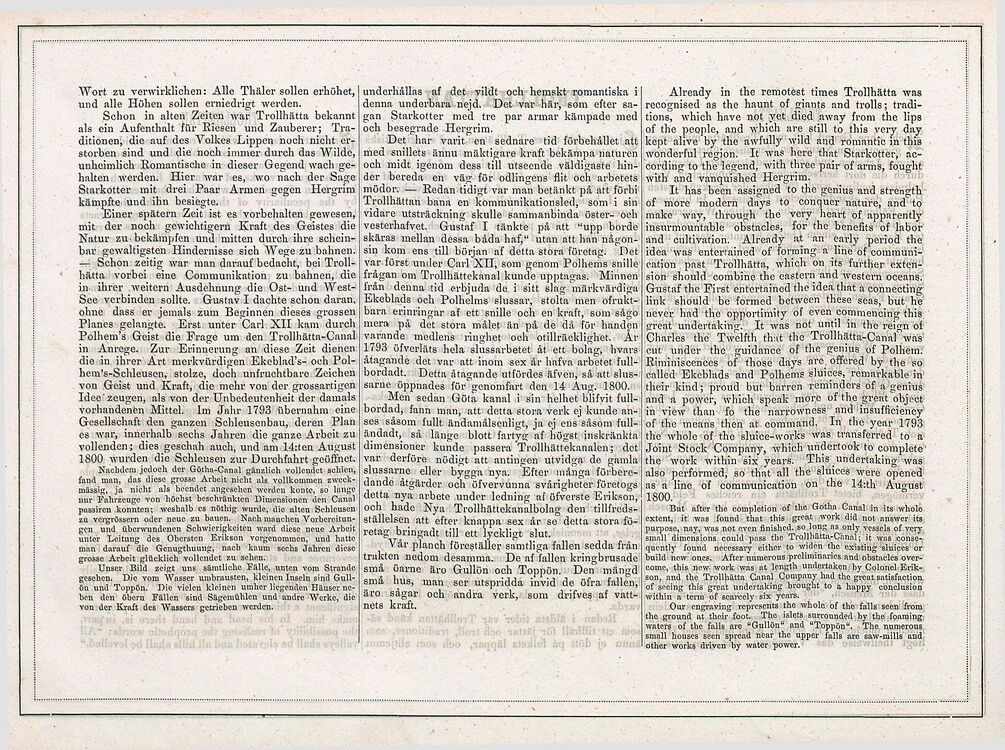 Wort zu verwirklichen: Alle Thäler sollen erhöhet,
und alle Höhen sollen erniedrigt werden.
Schon in alten Zeiten war Trollhätta bekannt
als ein Aufenthalt für Riesen und Zauberer; Tra-
ditionen, die auf des Volkes Lippen noch nicht er-
storben sind und die noch immer durch das Wilde,
unheimlich Romantische in dieser Gegend wach ge-
halten werden. Hier war es, wo nach der Sage
Starkotter mit drei Paar Armen gegen Hergrim
kämpfte und ihn besiegte.
Einer spätern Zeit ist es vorbehalten gewesen,
mit der noch gewichtigern Kraft des Geistes die
Natur zu bekämpfen und mitten durch ihre schein-
bar gewaltigsten Hindernisse sich Wege zu bahnen.
— Schon zeitig war man darauf bedacht, bei Troll-
hätta vorbei eine Communication zu bahnen, die
in ihrer weitern Ausdehnung die Ost- und West-
See verbinden sollte. Gustav I dachte schon daran,
ohne dass er jemals zum Beginnen dieses grossen
Planes gelangte. Erst unter Carl XII kam durch
Polhem's Geist die Frage um den Trollhätta-Canal
in Anrege. Zur Erinnerung an diese Zeit dienen
die in ihrer Art merkwürdigen Ekeblad's- och Pol-
hem's-Schleusen, stolze, doch unfruchtbare Zeichen
von Geist und Kraft, die mehr von der grossartigen
Idee zeugen, als von der Unbedeutenheit der damals
vorhandenen Mittel. Im Jahr 1793 übernahm eine
Gesellschaft den ganzen Schleusenbau, deren Plan
es war, innerhalb sechs Jahren die ganze Arbeit zu
vollenden; dies geschah auch, und am 14:ten August
1800 wurden die Schleusen zur Durchfahrt geöffnet.
Nachdem jedoch der Götha-Canal gänzlich vollendet schien,
fand man, das diese grosse Arbeit nicht als vollkommen zweck-
mässig, ja nicht als beendet angesehen werden konte, so lange
nur Fahrzeuge von höchst beschränkten Dimensionen den Canal
passiren konnten; weshalb es nöthig wurde, die alten Schleusen
zu vergrössern oder neue zu bauen. Nach manchen Vorbereitun-
gen und überwundenen Schwierigkeiten ward diese neue Arbeit
unter Leitung des Obersten Erikson vorgenommen, und hatte
man darauf die Genugthuung, nach kaum sechs Jahren diese
grosse Arbeit glücklich vollendet zu sehen.
Unser Bild zeigt uns sämtliche Fälle, unten vom Strande
gesehen. Die vom Wasser umbrausten, kleinen Inseln sind Gull-
ön und Toppön. Die vielen kleinen umher liegenden Häuser ne-
ben den öbern Fällen sind Sägemühlen und andre Werke, die
von der Kraft des Wassers getrieben werden.
underhållas af det vildt och hemskt romantiska i
denna underbara nejd. Det var här, som efter sa-
gan Starkotter med tre par armar kämpade med
och besegrade Hergrim.
Det har varit en sednare tid förbehållet att
med snillets ännu mäktigare kraft bekämpa naturen
och midt igenom dess till utseende väldigaste hin-
der bereda en väg för odlingens flit och arbetets
mödor. — Redan tidigt var man betänkt på att förbi
Trollhättan bana en kommunikationsled, som i sin
vidare utsträckning skulle sammanbinda öster- och
vesterhafvet. Gustaf I tänkte på att "upp borde
skäras mellan dessa båda haf," utan att han någon-
sin kom ens till början af detta stora företag. Det
var först under Carl XII, som genom Polhems snille
frågan om Trollhättekanal kunde upptagas. Minnen
från denna tid erbjuda de i sitt slag märkvärdiga
Ekeblads och Polhelms slussar, stolta men ofrukt-
bara erinringar af ett snille och en kraft, som sågo
mera på det stora målet än på de då för handen
varande medlens ringhet och otillräcklighet. År
1793 öfverläts hela slussarbetet åt ett bolag, hvars
åtagande det var att inom sex år hafva arbetet full-
bordadt. Detta åtagande utfördes äfven, så att slus-
sarne öppnades för genomfart den 14 Aug. 1800.
Men sedan Göta kanal i sin helhet blifvit full-
bordad, fann man, att detta stora verk ej kunde an-
ses såsom fullt ändamålsenligt, ja ej ens såsom full-
ändadt, så länge blott fartyg af högst inskränkta
dimensioner kunde passera Trollhättekanalen; det
var derföre nödigt att antingen utvidga de gamla
slussarne eller bygga nya. Efter många förbere-
dande åtgärder och öfvervunna svårigheter företogs
detta nya arbete under ledning af öfverste Erikson,
och hade Nya Trollhättekanalbolag den tillfreds-
ställelsen att efter knappa sex år se detta stora fö-
retag bringadt till ett lyckligt slut.
Vår planch föreställer samtliga fallen sedda från
trakten nedom desamma. De af fallen kringbrusade
små öarne äro Gullön och Toppön. Den mängd
små hus, man ser utspridda invid de öfra fallen,
äro sågar och andra verk, som drifves af vatt-
nets kraft.
Already in the remotest times Trollhätta was
recognised as the haunt of giants and trolls; tradi-
tions, which have not yet died away from the lips
of the people, and which are still to this very day
kept alive by the awfully wild and romantic in this
wonderful region. It was here that Starkotter, ac-
cording to the legend, with three pair of arms, fought
with and vanquished Hergrim.
It has been assigned to the genius and strength
of more modern days to conquer nature, and to
make way, through the very heart of apparently
insurmountable obstacles, for the benefits of labor
and cultivation. Already at an early period the
idea was entertained of forming a line of communi-
cation past Trollhätta, which on its further exten-
sion should combine the eastern and western oceans.
Gustaf the First entertained the idea that a connecting
link should be formed between these seas, but he
never had the opportunity of even commencing this
great undertaking. It was not until in the reign of
Charles the Twelfth that the Trollhätta-Canal was
cut under the guidance of the genius of Polhem.
Riminiscences of those days are offered by the so
called Ekeblads and Polhems sluices, remarkable in
their kind; proud but barren reminders of a genius
and a power, which speak more of the great object
in view than fo the narrowness and insufficiency
of the means then at command. In the year 1793
the whole of the sluice-works was transferred to a
Joint Stock Company, which undertook to complete
the work within six years. This undertaking was
also performed, so that all the sluices were opened
as a line of communication on the 14:th August
1800.
But after the completion of the Gotha Canal in its whole
extent, it was found that this great work did not answer its
purpose, nay, was not even finished, so long as only vessels of very
small dimensions could pass the Trollhätta-Canal; it was conse-
quently found necessary either to widen the existing sluices or
build new ones. After numerous preliminaries and obstacles over-
come, this new work was at length undertaken by Colonel Erik-
son, and the Trollhätta Canal Company had the great satisfaction
of seeing this great undertaking brought to a happy conclusion
within a term of scarcely six years.
Our engraving represents the whole of the falls seen from
the ground at their foot. The islets surrounded by the foaming
waters of the falls are "Gullön" and "Toppön". The numerous
small houses seen spread near the upper falls are saw-mills and
other works driven by water power.